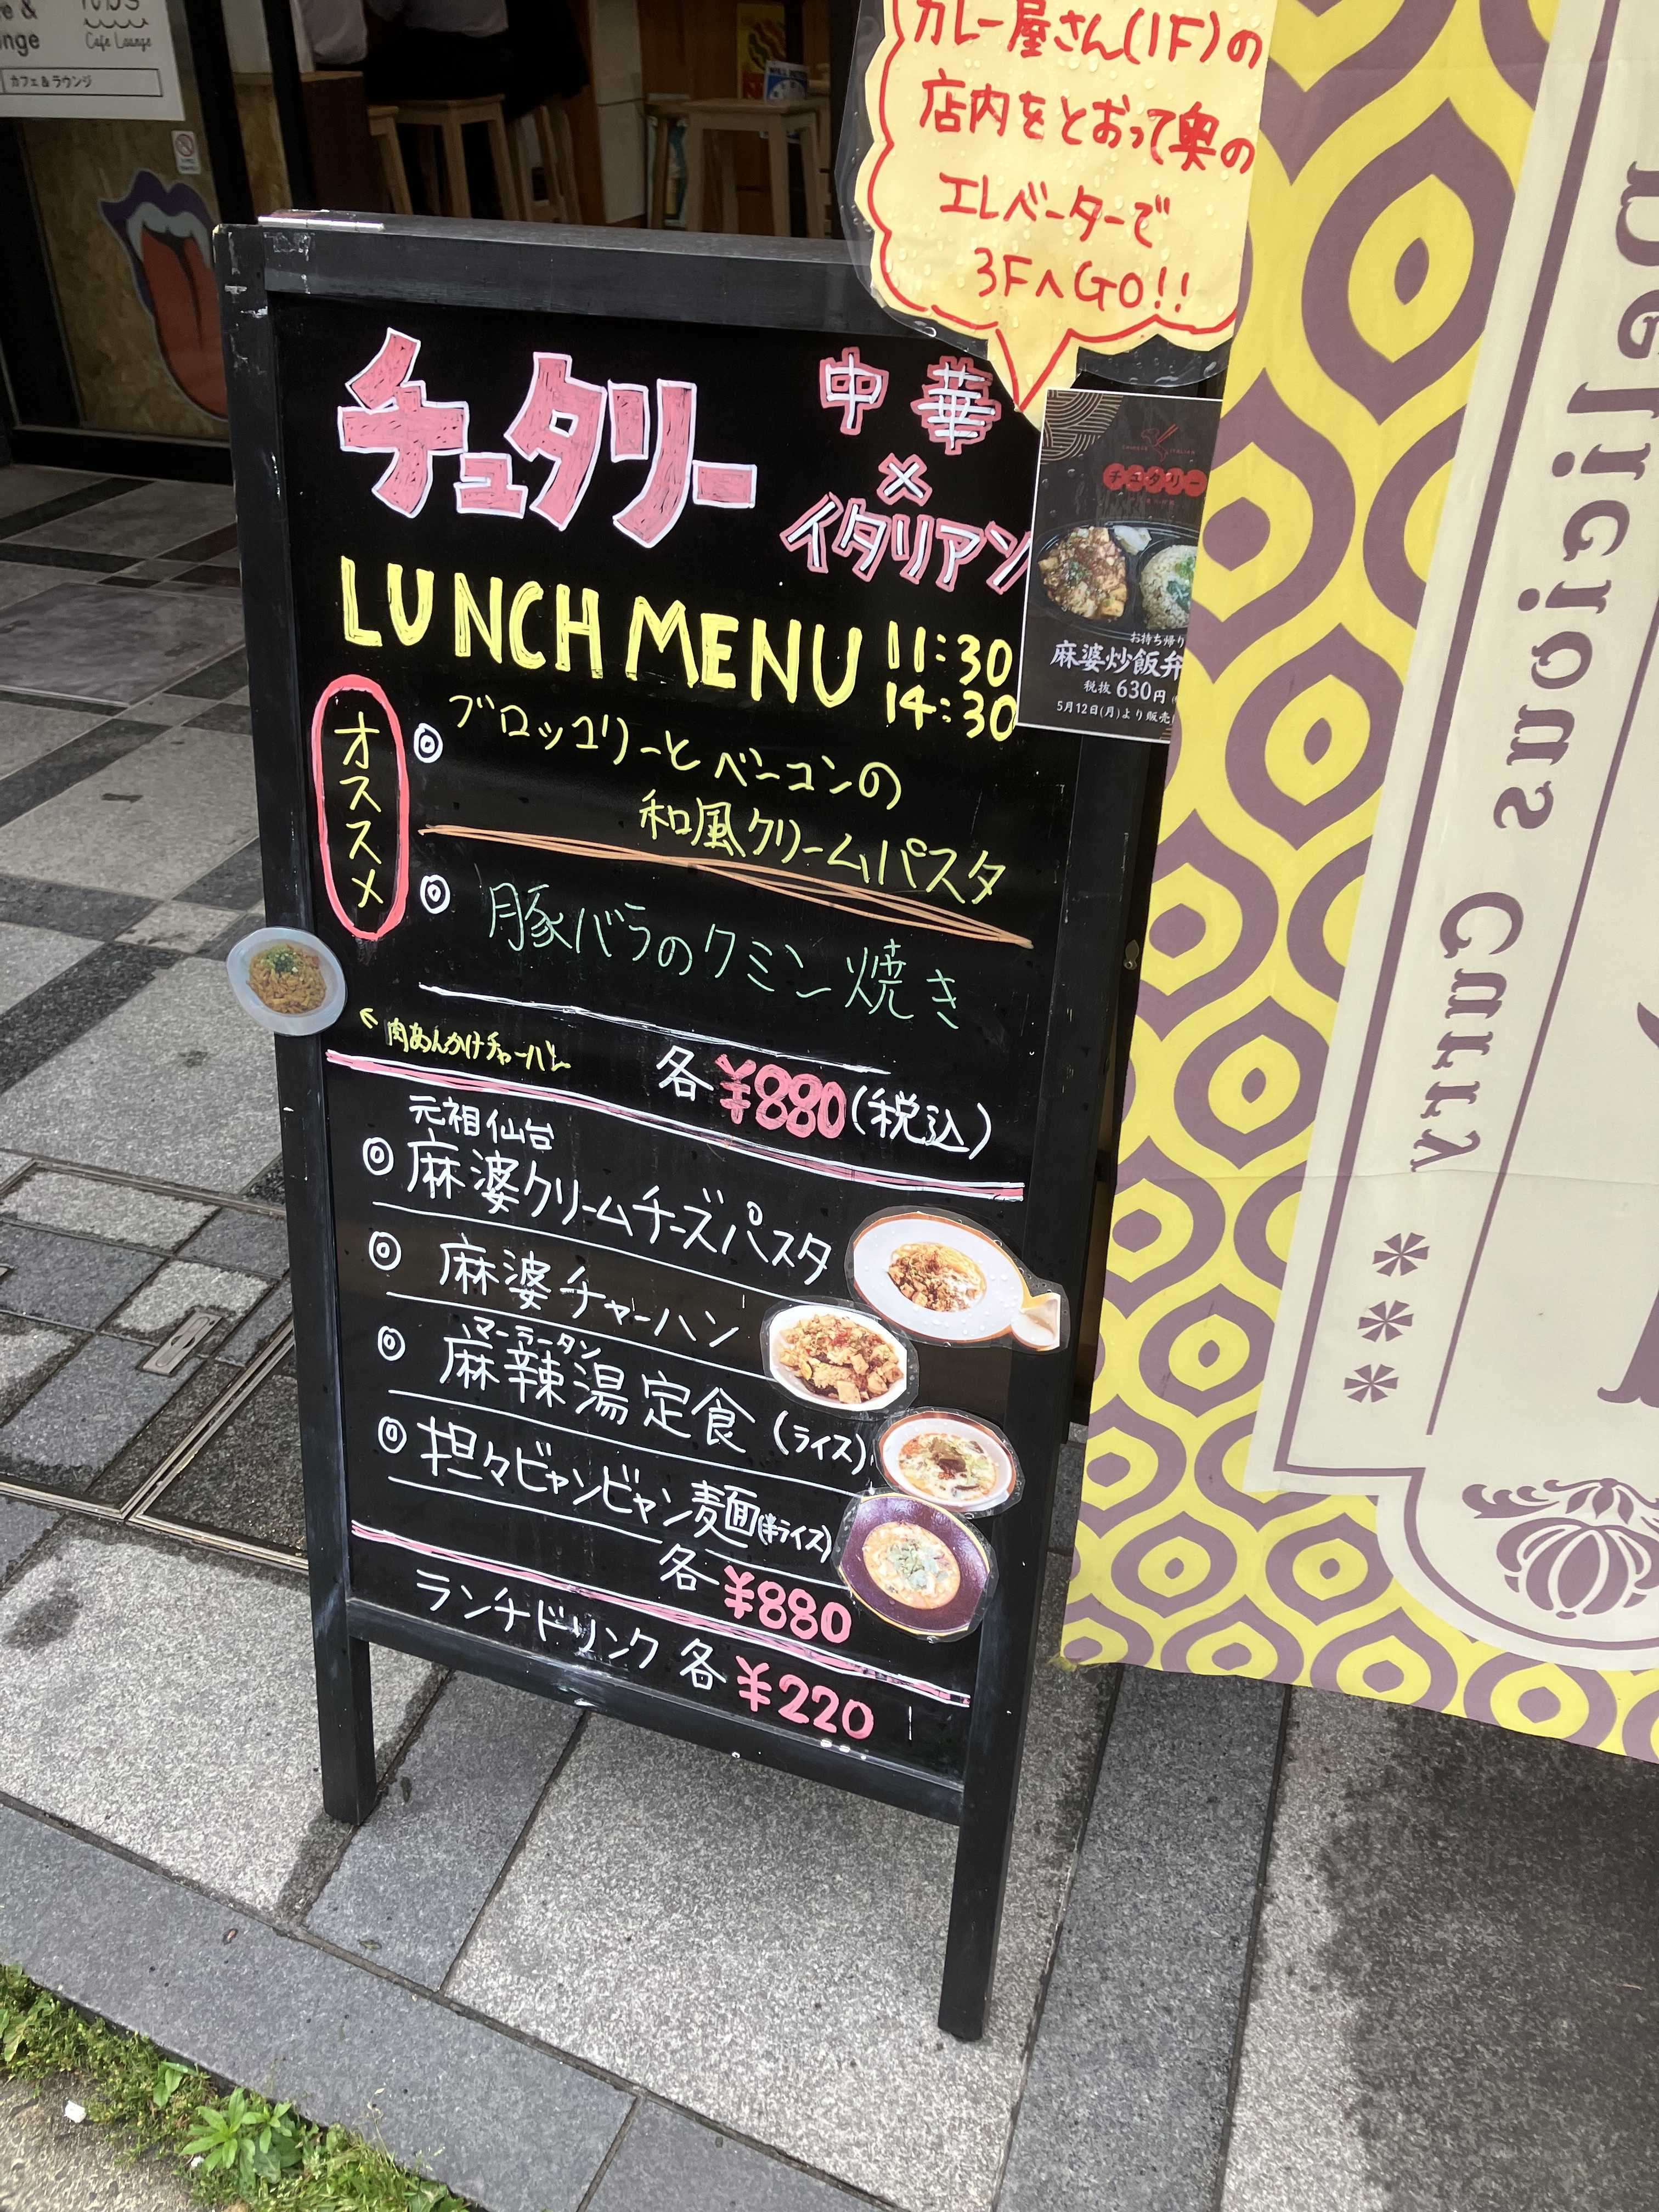 nge
Cafe Lounge
カフェ&ラウンジ
カレー屋さん(1F)の
店内をとおって奥の
エレベーターで
3FへGO!!
チュタリー
中華
×
イタリアン
LUNCH MENU 11:30
14:30
オススメ
◎ ブロッコリーとベーコンの
和風クリームパスタ
◎ 豚バラのクミン焼き
肉あんかけチャーハン
各¥880(税込)
元祖仙台
◎麻婆クリームチーズパスタ
◎ 麻婆チャーハン
マーラータン
◎ 麻辣湯定食(ライス)
◎ 担々ビャンビャン麺(半ライス)
各¥880
ランチドリンク 各¥220
CHINESE ITALIAN
チュタリー
お持ち帰り
麻婆炒飯弁
税抜630円
5月12日(月)より販売
Delicious Curry